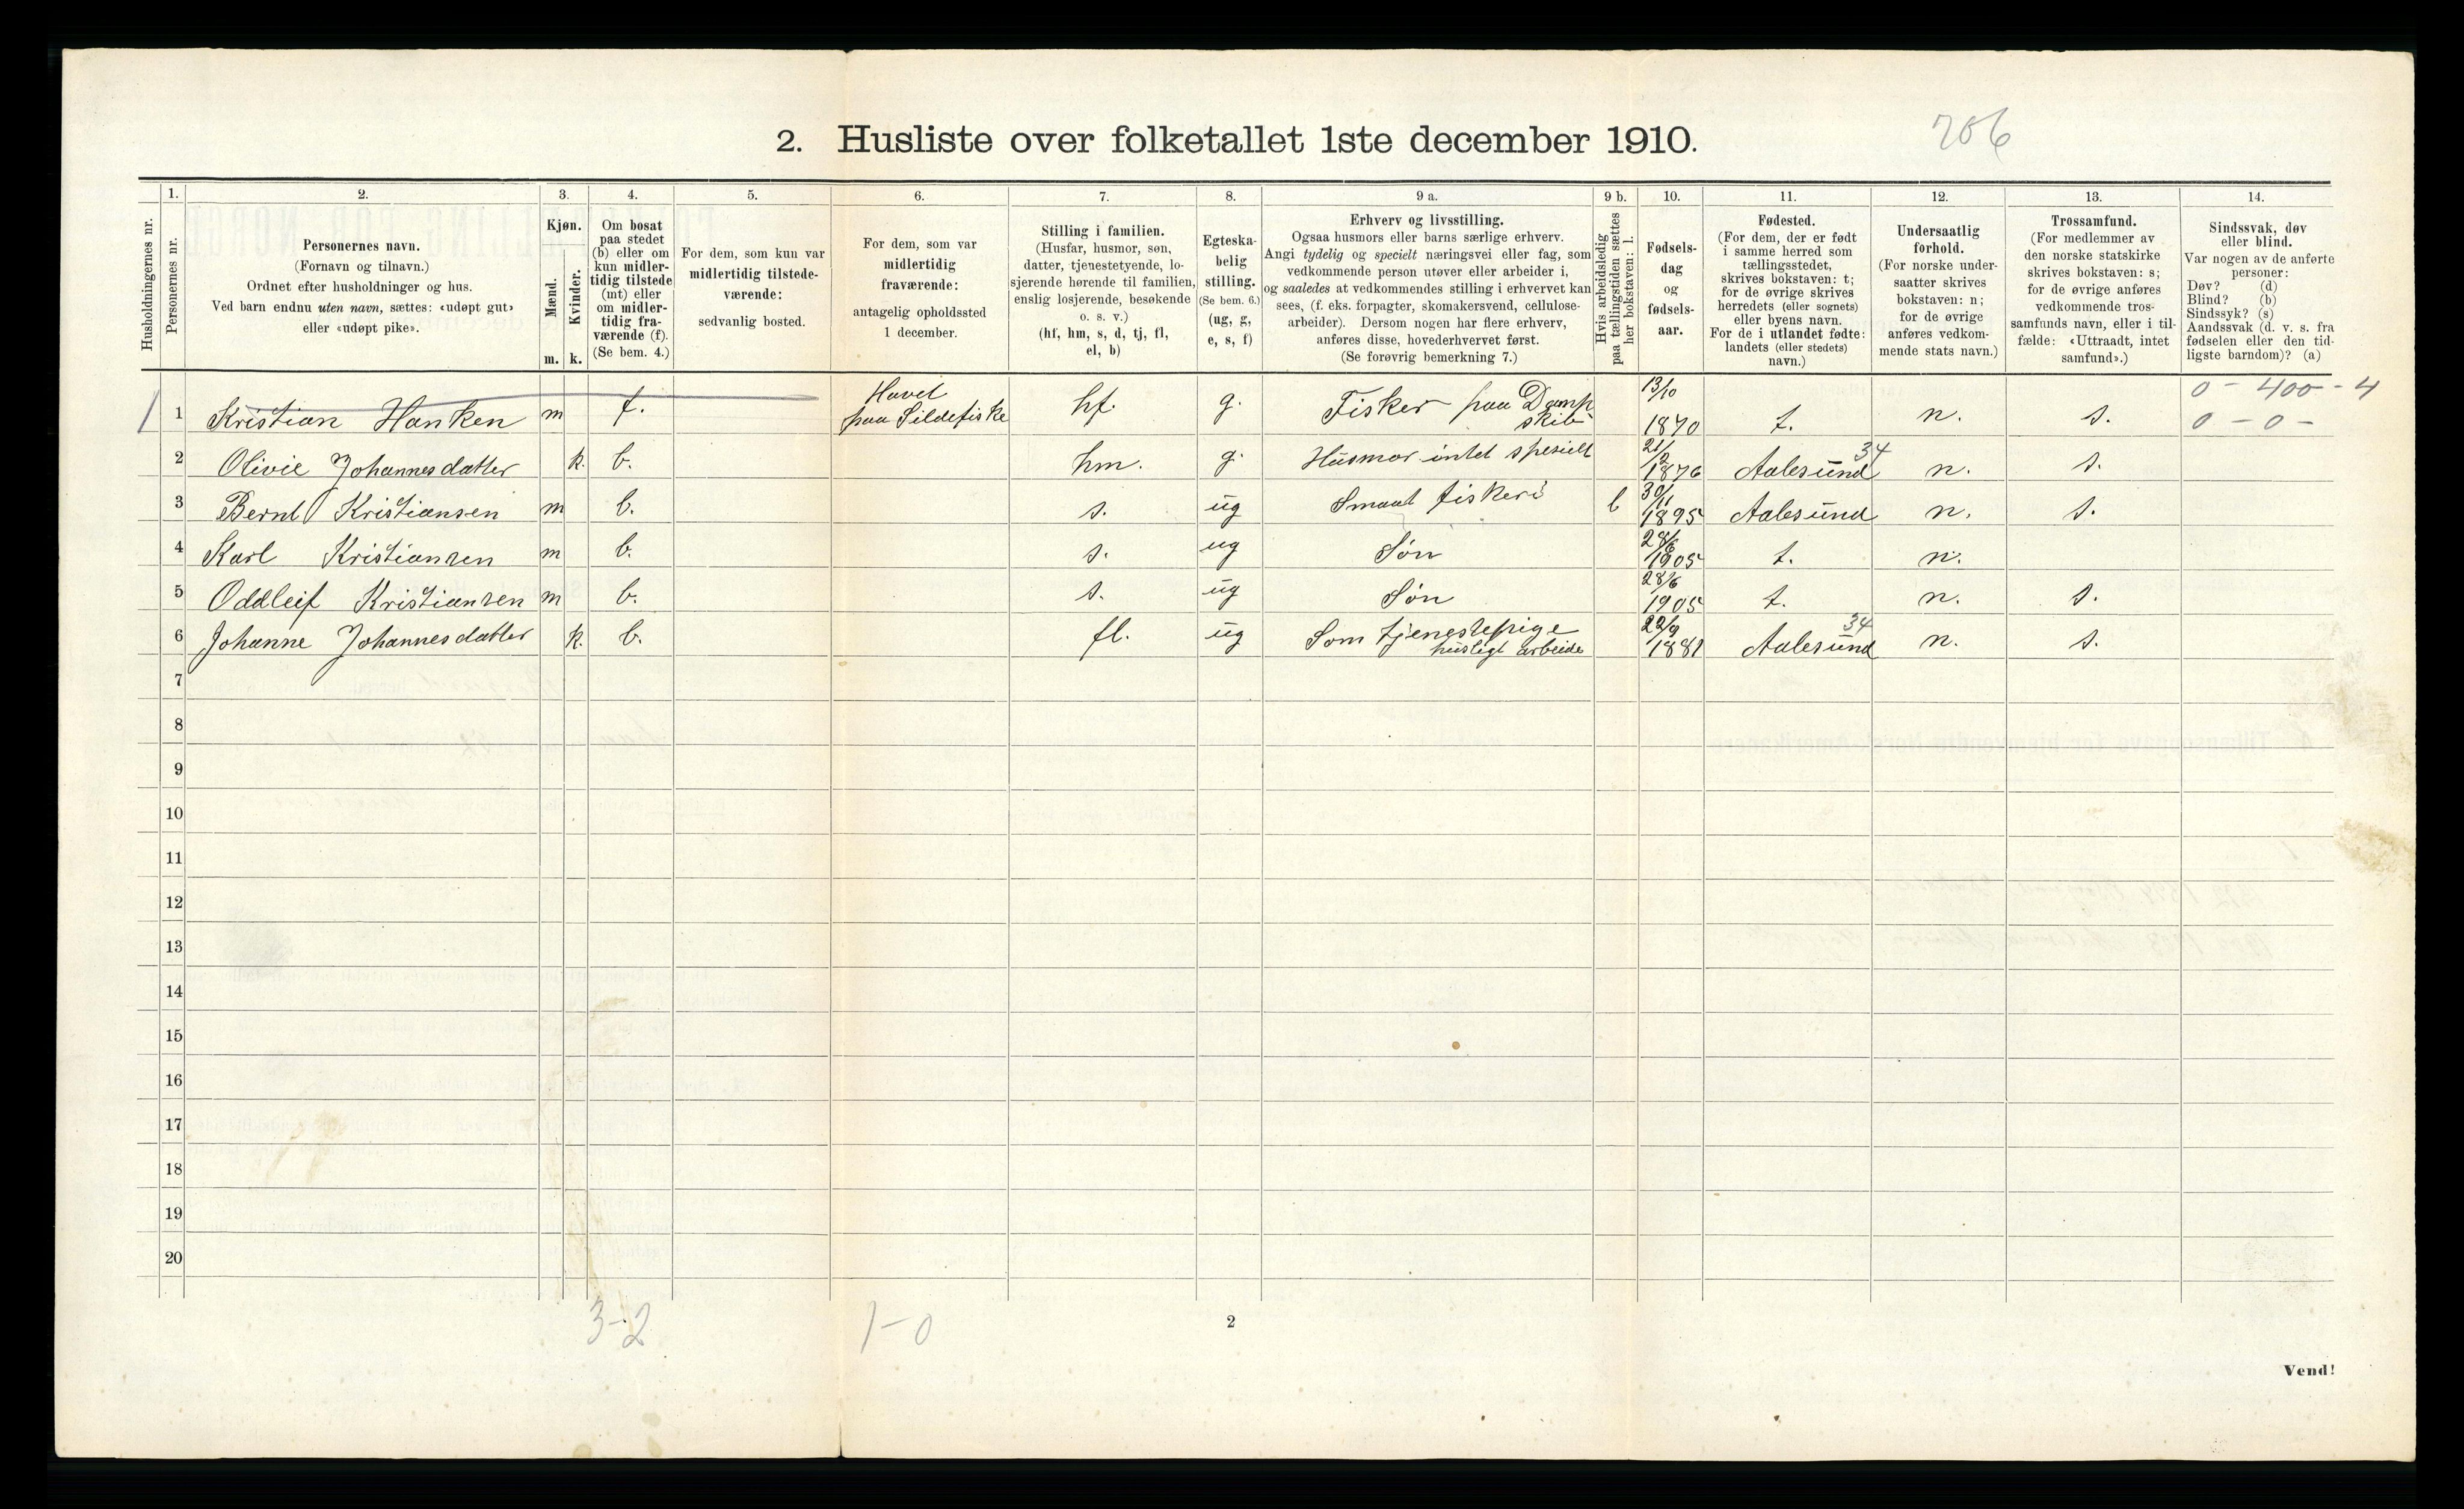 2. Husliste over folketallet 1ste december 1910.
206
1. 2. 3. 4. 5. 6. 7. 8. 9 a. 9 b. 10. 11. 12. 13. 14.
Husholdningernes nr.
Personernes nr.
Personernes navn.
(Fornavn og tilnavn.)
Ordnet efter husholdninger og hus.
Ved barn endnu uten navn, sættes: «udøpt gut»
eller «udøpt pike».
Kjøn.
Mænd.
Kvinder.
m. k.
Om bosat
paa stedet
(b) eller om
kun midler-
tidig tilstede
(mt) eller
om midler-
tidig fra-
værende (f).
(Se bem. 4.)
For dem, som kun var
midlertidig tilstede-
værende:
sedvanlig bosted.
For dem, som var
midlertidig
fraværende:
antagelig opholdssted
1 december.
Stilling i familien.
(Husfar, husmor, søn,
datter, tjenestetyende, lo-
sjerende hørende til familien,
enslig losjerende, besøkende
o. s. v.)
(hf, hm, s, d, tj, fl,
el, b)
Egteska-
belig
stilling.
(Se bem. 6.)
(ug, g,
e, s, f)
Erhverv og livsstilling.
Ogsaa husmors eller barns særlige erhverv.
Angi tydelig og specielt næringsvei eller fag, som
vedkommende person utøver eller arbeider i,
og saaledes at vedkommendes stilling i erhvervet kan
sees, (f. eks. forpagter, skomakersvend, cellulose-
arbeider). Dersom nogen har flere erhverv,
anføres disse, hovederhvervet først.
(Se forøvrig bemerkning 7.)
Hvis arbeidsledig
paa tællingstiden sættes
her bokstaven: l.
Fødsels-
dag
og
fødsels-
aar.
Fødested.
(For dem, der er født
i samme herred som
tællingsstedet,
skrives bokstaven: t;
for de øvrige skrives
herredets (eller sognets)
eller byens navn.
For de i utlandet fødte:
landets (eller stedets)
navn.)
Undersaatlig
forhold.
(For norske under-
saatter skrives
bokstaven: n;
for de øvrige
anføres vedkom-
mende stats navn.)
Trossamfund.
(For medlemmer av
den norske statskirke
skrives bokstaven: s;
for de øvrige anføres
vedkommende tros-
samfunds navn, eller i til-
fælde: «Uttraadt, intet
samfund».)
Sindssvak, døv
eller blind.
Var nogen av de anførte
personer:
Døv? (d)
Blind? (b)
Sindssyk? (s)
Aandssvak (d. v. s. fra
fødselen eller den tid-
ligste barndom)? (a)
Havet 13/10 0 - 400 - 4
1 1 Kristian Hanken m f. paa Sildefiske hf. g. Fisker paa Damp t. n. s. 0 - 0 -
skib 1870
2 Olivie Johannesdatter k. b. hm. g. Husmor intet spesielt 21/2 1876 Aalesund 34 n. s.
3 Bernt Kristiansen m b. s. ug Smaat fiskeri l 30/11 1895 Aalesund n. s.
4 Karl Kristiansen m b. s. ug Søn 28/6 1905 t. n.
5 Oddleif Kristiansen m b. s. ug Søn 28/6 1905 t. n. s.
6 Johanne Johannesdatter k. b. fl. ug Som tjenestepige 22/9 1881 Aalesund 34 n. s.
husligt arbeide
7
8
9
10
11
12
13
14
15
16
17
18
19
20
3-2 1-0
2
Vend!